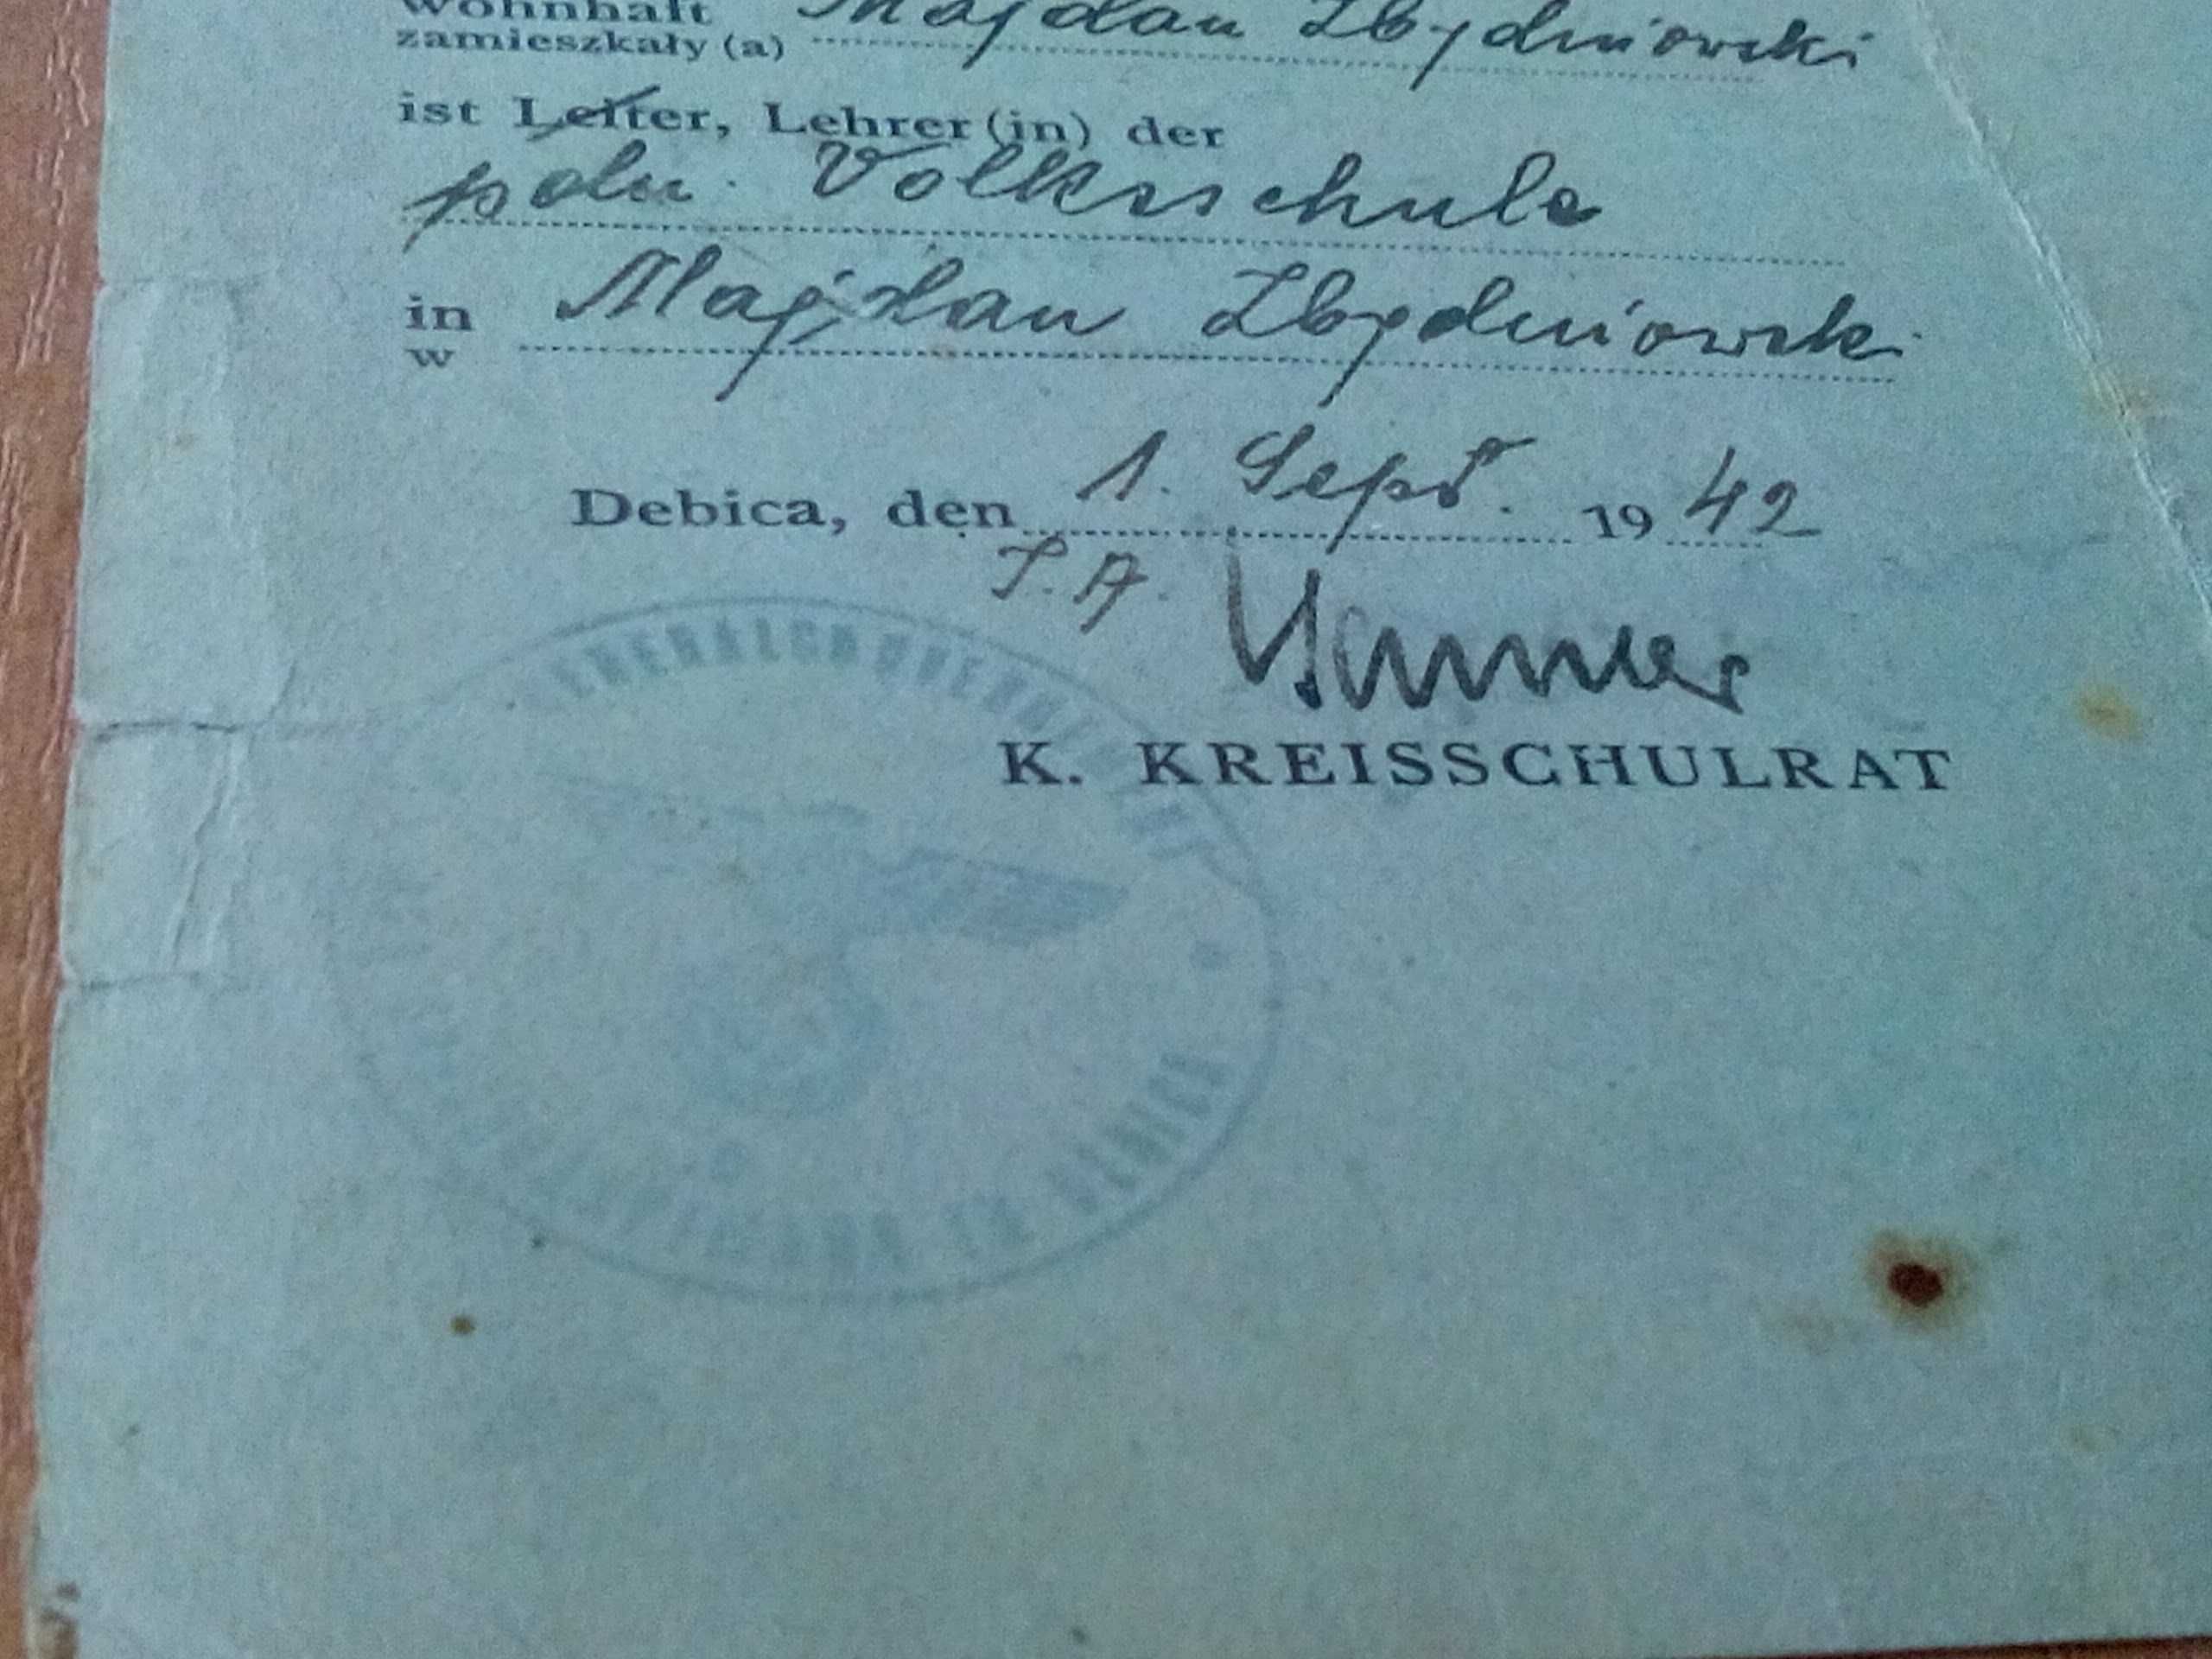 wohnhaft Majdan Zbydniowski
zamieszkały (a)
ist Leiter, Lehrer (in) der
poln. Volksschule
in Majdan Zbydniowski
w
Debica, den 1. Sept. 1942
I.A.
K. KREISSCHULRAT
GENERALGOUVERNEMENT
IN DEBICA